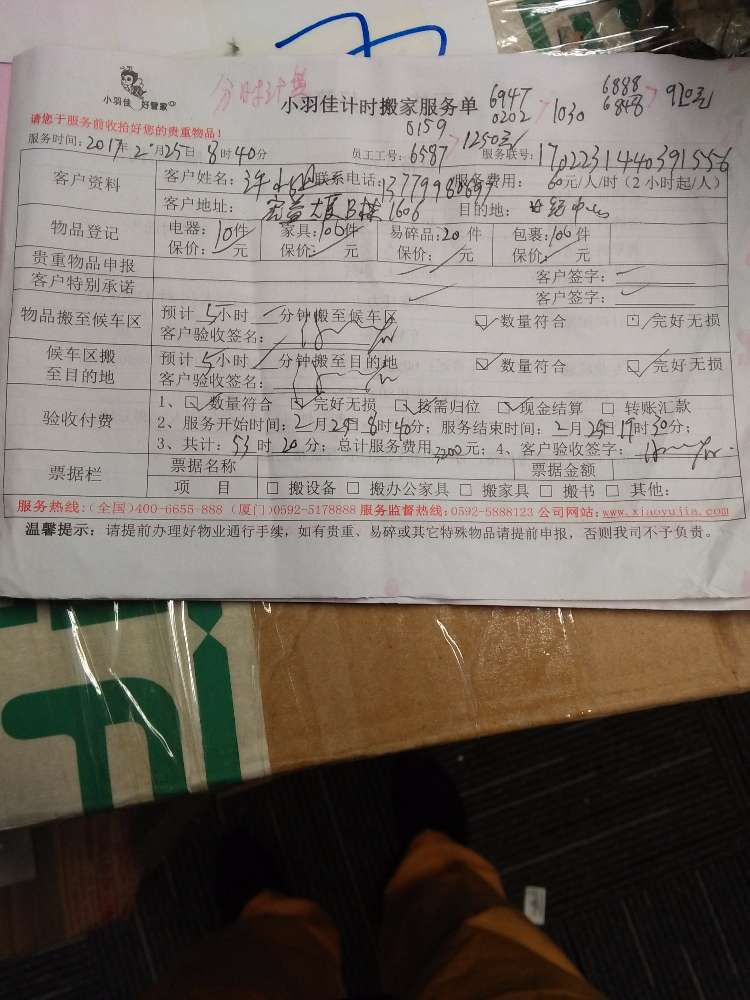 小羽佳 好管家
分时计算
小羽佳计时搬家服务单
6947
0202 > 1030
6888
6848 > 920元
0159
6587 > 1250元
请您于服务前收拾好您的贵重物品！
服务时间：2017年2月25日8时40分 员工工号： 服务联号：1702231440391556
客户资料 客户姓名：许 联系电话： 服务费用：60元/人/时（2小时起/人）
客户地址：大厦B栋1606 目的地：中心
物品登记 电器：10件 家具：106件 易碎品：20件 包裹：106件
保价： 元 保价： 元 保价： 元 保价： 元
贵重物品申报 客户签字：
客户特别承诺 客户签字：
物品搬至候车区 预计 5小时 分钟搬至候车区 数量符合 完好无损
客户验收签名：
候车区搬至目的地 预计 5小时 分钟搬至目的地 数量符合 完好无损
客户验收签名：
验收付费 1、数量符合 完好无损 按需归位 现金结算 转账汇款
2、服务开始时间：2月25日8时40分；服务结束时间：2月25日19时30分；
3、共计：53时20分；总计服务费用3200元；4、客户验收签字：
票据栏 票据名称 票据金额
项 目 搬设备 搬办公家具 搬家具 搬书 其他：
服务热线：（全国）400-6655-888（厦门）0592-5178888 服务监督热线：0592-5888123 公司网站：www.xiaoyujia.com
温馨提示：请提前办理好物业通行手续，如有贵重、易碎或其它特殊物品请提前申报，否则我司不予负责。